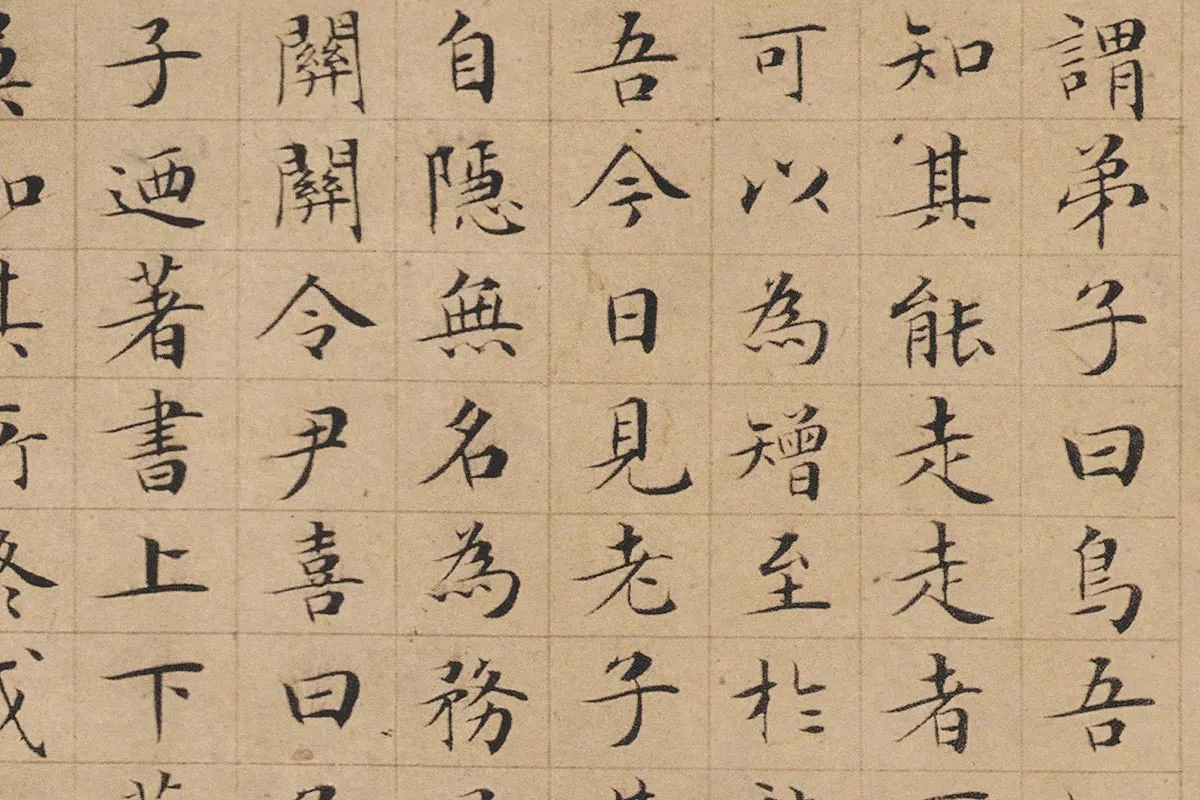 謂弟子曰鳥吾
知其能走走者
可以為矰至於
吾今日見老子
自隱無名為務
關關令尹喜曰
子迺著書上下
莫知其所終或